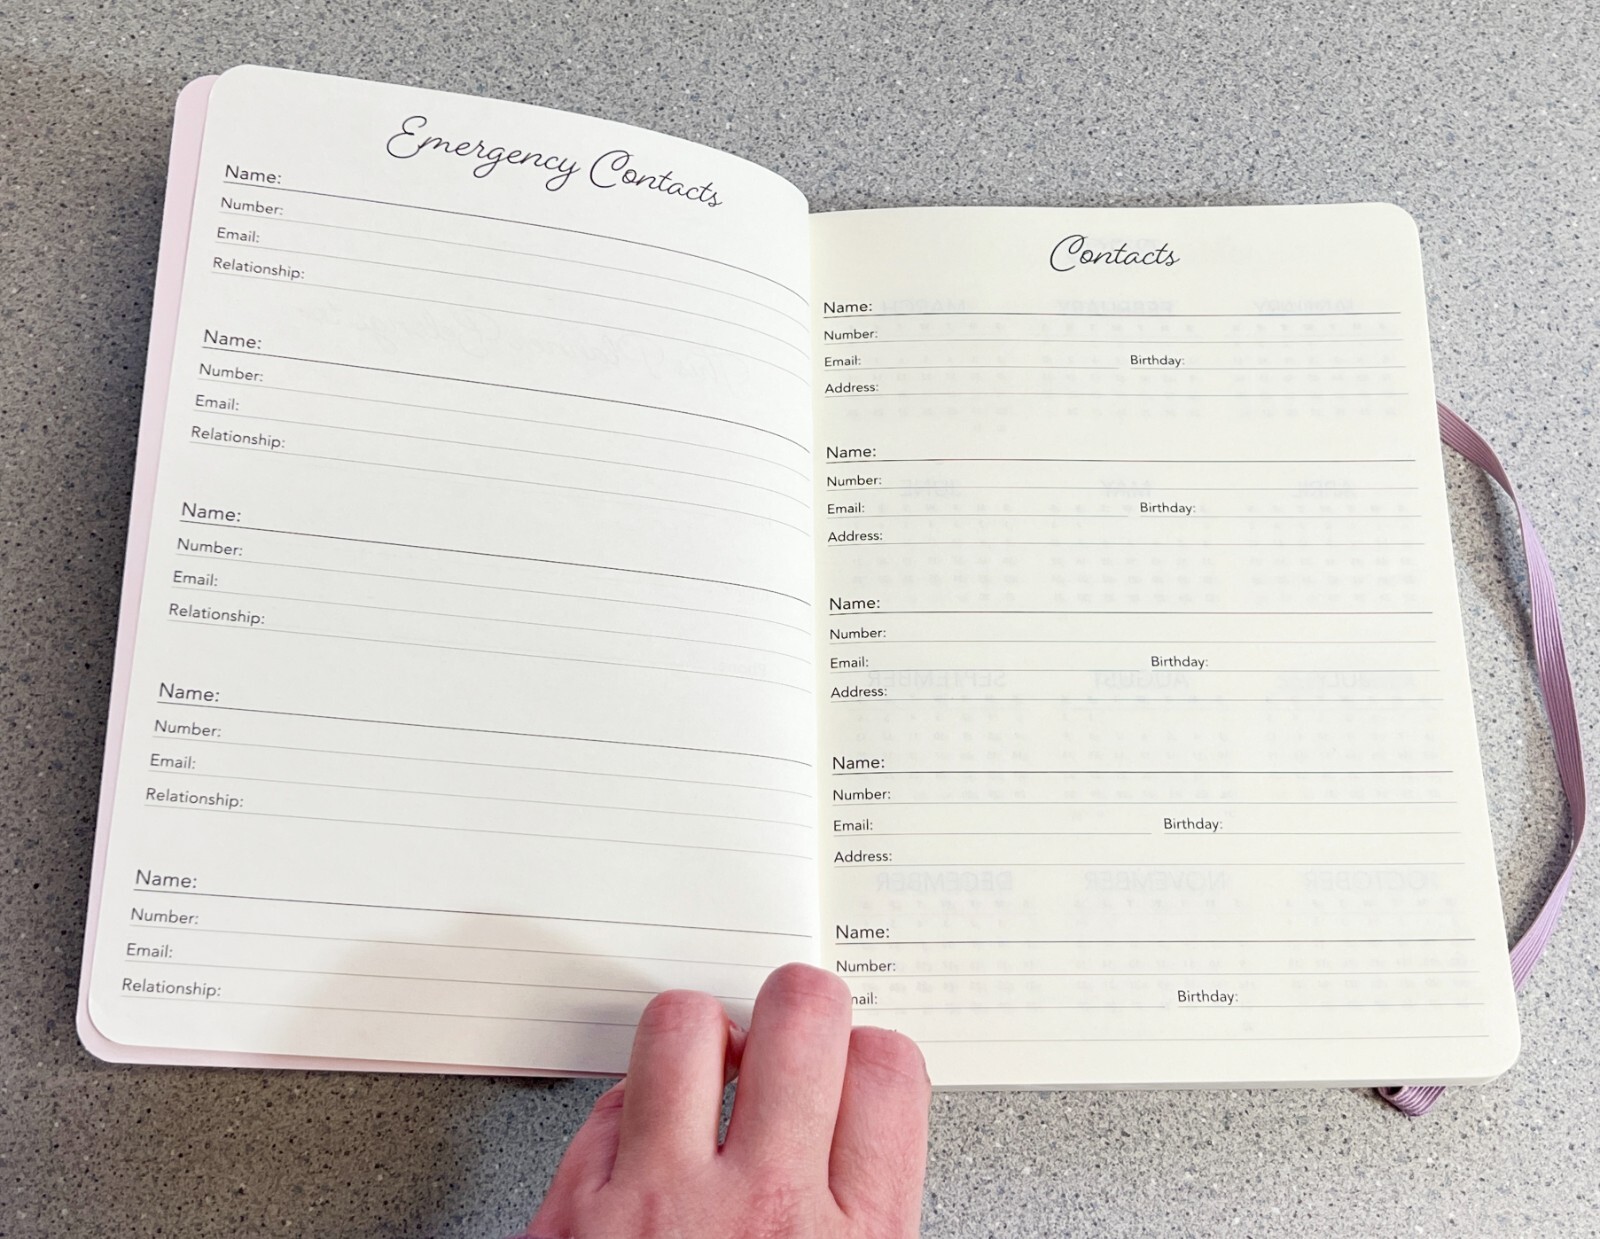 Emergency Contacts
Name:
Number:
Email:
Relationship:
Name:
Number:
Email:
Relationship:
Name:
Number:
Email:
Relationship:
Name:
Number:
Email:
Relationship:
Name:
Number:
Email:
Relationship:
Contacts
Name:
Number:
Email: Birthday:
Address:
Name:
Number:
Email: Birthday:
Address:
Name:
Number:
Email: Birthday:
Address:
Name:
Number:
Email: Birthday:
Address:
Name:
Number:
mail: Birthday: